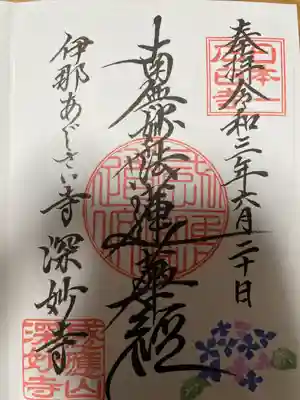 奉拝 令和三年六月二十日
南無妙法蓮華経
伊那あじさい寺 深妙寺
深妙寺